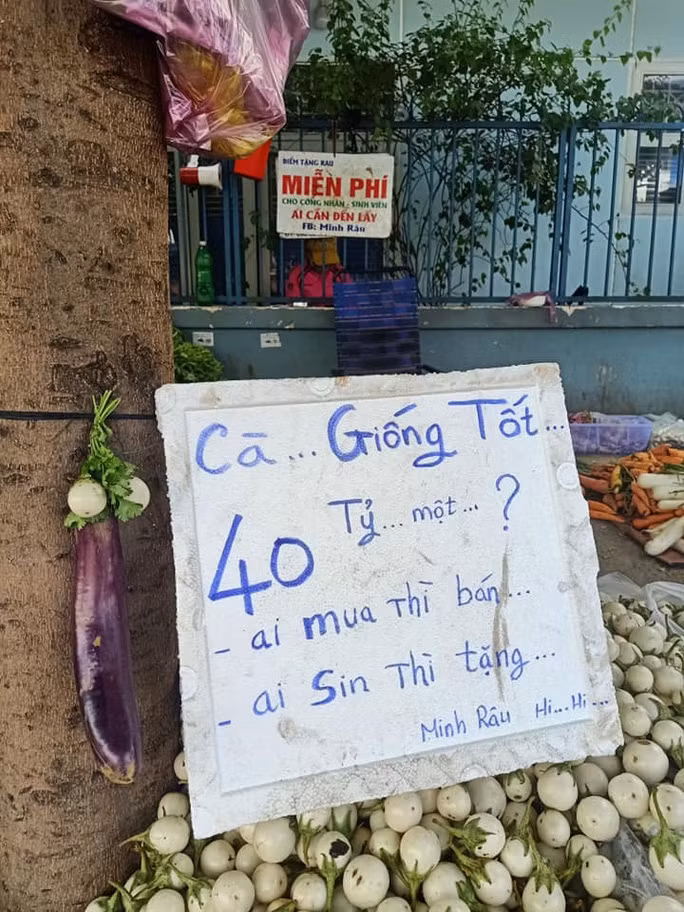 ĐIỂM TẶNG RAU
MIỄN PHÍ
CHO CÔNG NHÂN - SINH VIÊN
AI CẦN ĐẾN LẤY
FB: Minh Râu
Cà... Giống Tốt...
40 Tỷ... một... ?
- ai mua Thì bán...
- ai Sin Thì tặng...
Minh Râu Hi...Hi...